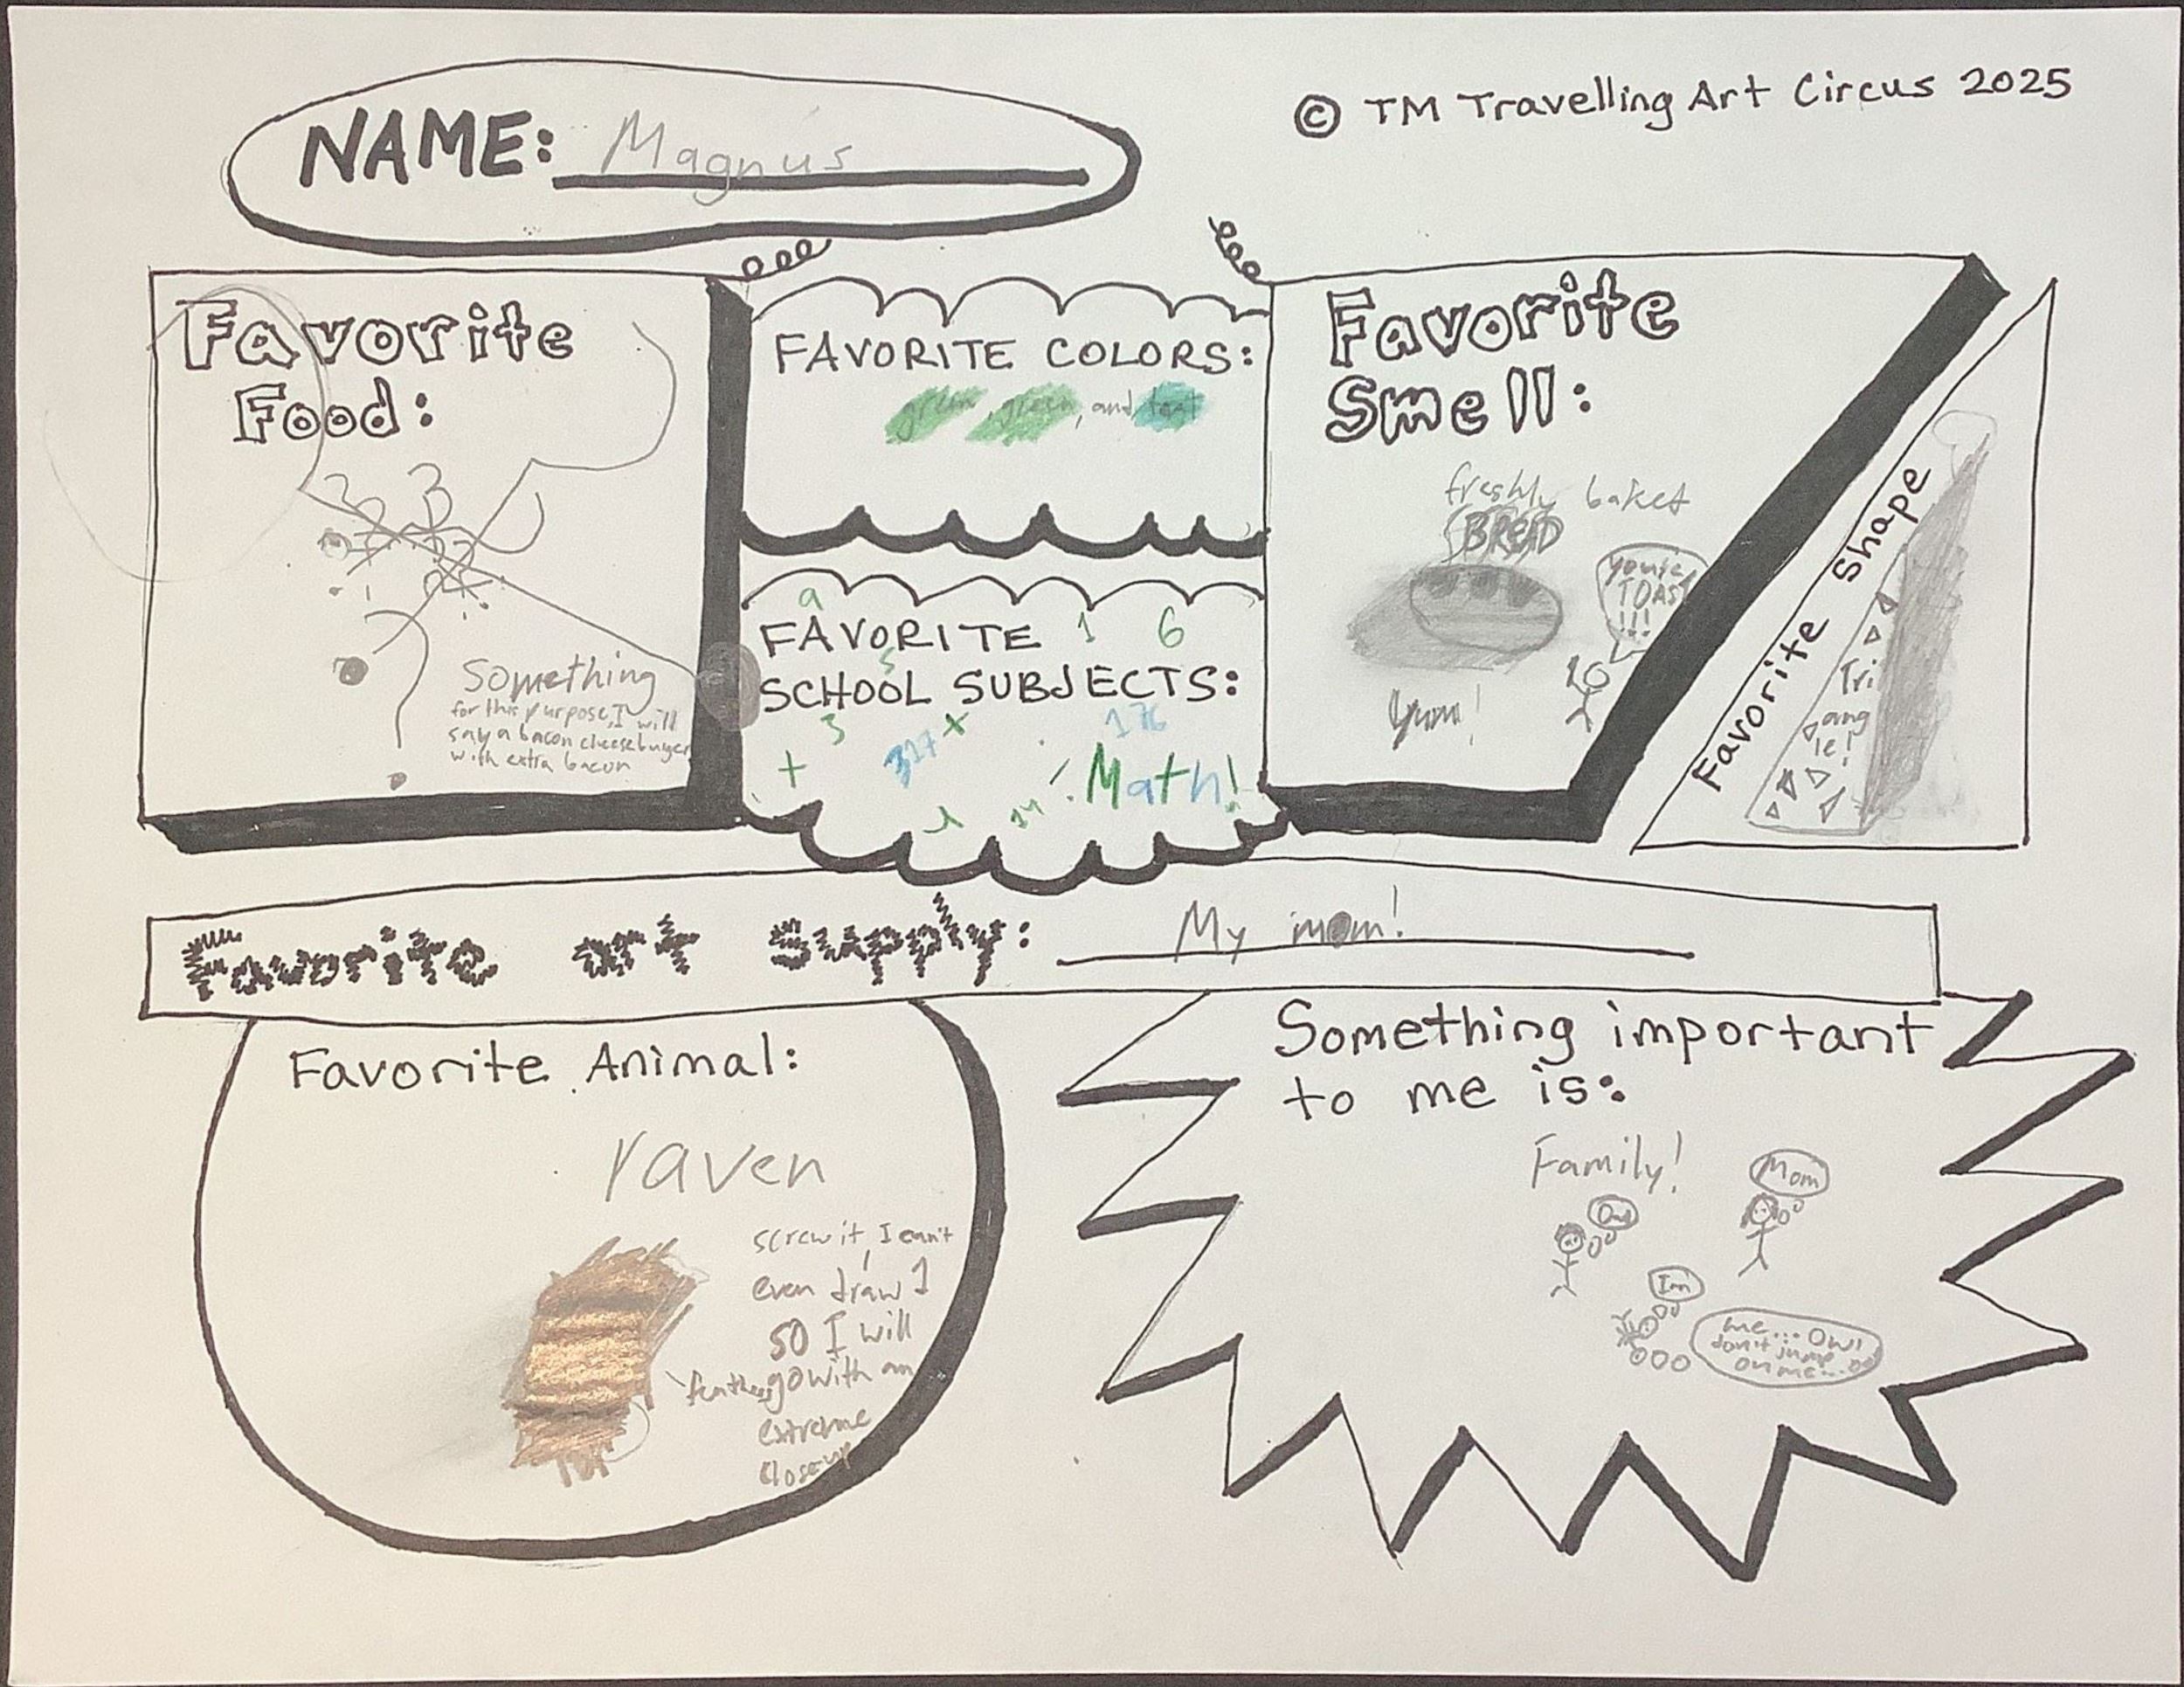 © TM Travelling Art Circus 2025
NAME: Magnus
Favorite
Food:
Something
for this purpose, I will
say a bacon cheeseburger
with extra bacon
FAVORITE COLORS:
green, green, and
a
FAVORITE 1 6
5
SCHOOL SUBJECTS:
3 317 x 176
+ Math!
14
Favorite
Smell:
freshly baked
BREAD
you're
TOAST
!!!
Yum!
Favorite Shape
Tri
ang
le!
Favorite art supply: My mom!
Favorite Animal:
raven
screw it, I can't
even draw 1
so I will
go with an
extreme
closeup
feathers
Something important
to me is:
Family!
Mom
Dad
Ian
me... Ow!
don't jump
on me...